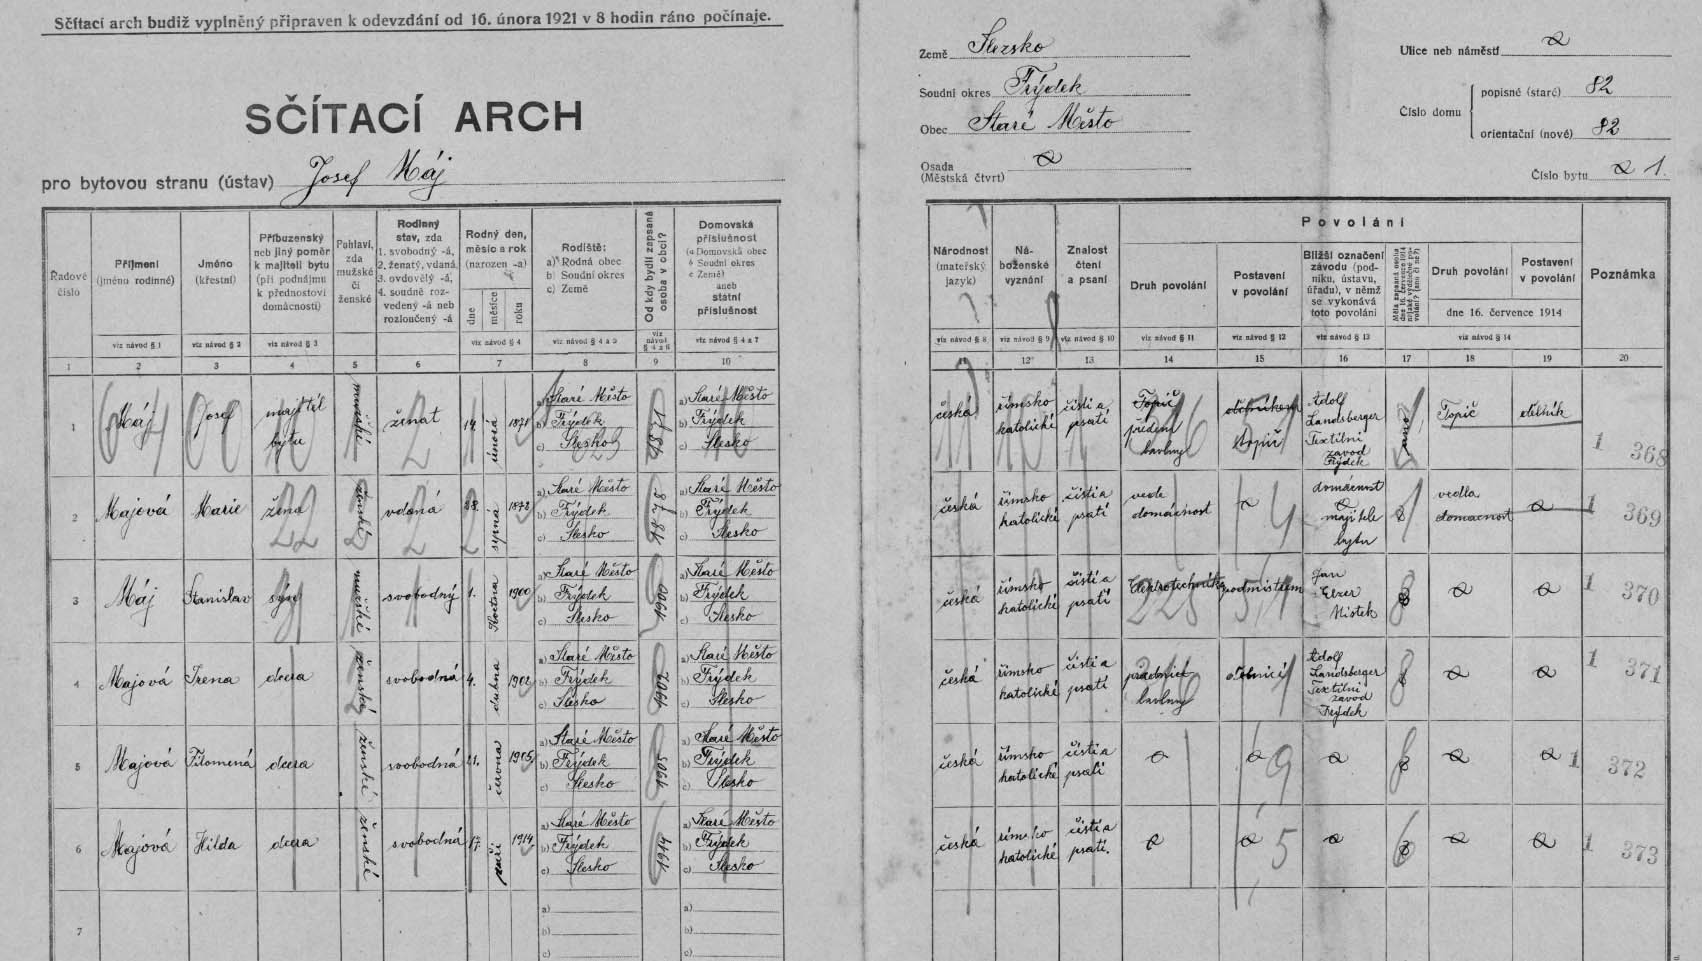 Sčítací arch budiž vyplněný připraven k odevzdání od 16. února 1921 v 8 hodin ráno počínaje.
SČÍTACÍ ARCH
pro bytovou stranu (ústav) Josef Máj
Země Slezsko
Soudní okres Frýdek
Obec Staré Město
Osada
(Městská čtvrť)
Ulice neb náměstí
Číslo domu
popisné (staré) 82
orientační (nové) 82
Číslo bytu 1.
Řadové číslo
Příjmení (jméno rodinné)
Jméno (křestní)
Příbuzenský neb jiný poměr k majiteli bytu (při podnájmu k přednostovi domácnosti)
Pohlaví, zda mužské či ženské
Rodinný stav, zda 1. svobodný -á, 2. ženatý, vdaná 3. ovdovělý -á, 4. soudně rozvedený -á neb rozloučený -á
Rodný den, měsíc a rok (narozen -a)
dne měsíce roku
Rodiště: a) Rodná obec b) Soudní okres c) Země
Od kdy bydlí zapsaná osoba v obci?
Domovská příslušnost (a Domovská obec b Soudní okres c Země) aneb státní příslušnost
Národnost (mateřský jazyk)
Náboženské vyznání
Znalost čtení a psaní
Povolání
Druh povolání
Postavení v povolání
Bližší označení závodu (podniku, ústavu, úřadu), v němž se vykonává toto povolání
Druh povolání
Postavení v povolání
dne 16. července 1914
Poznámka
viz návod § 1 viz návod § 2 viz návod § 3 viz návod § 4 viz návod § 4 a 5 viz návod § 4 a 6 viz návod § 4 a 7
viz návod § 8 viz návod § 9 viz návod § 10 viz návod § 11 viz návod § 12 viz návod § 13 viz návod § 14
1 2 3 4 5 6 7 8 9 10
11 12 13 14 15 16 17 18 19 20
1 Máj Josef majitel bytu mužské ženat 14 února 1871 a) Staré Město b) Frýdek c) Slesko 1871 a) Staré Město b) Frýdek c) Slesko
česká římsko katolické čísti a psati Topič příden bavlny topič Adolf Landsberger Textilní závod Frýdek ano Topič dělník 1 368
2 Majová Marie žena ženské vdaná 28. srpna 1878 a) Staré Město b) Frýdek c) Slesko 1878 a) Staré Město b) Frýdek c) Slesko
česká římsko katolické čísti a psati vede domácnost domácnost majitele bytu vedla domacnost 1 369
3 Máj Stanislav syn mužské svobodný 1. 1900 a) Staré Město b) Frýdek c) Slesko 1900 a) Staré Město b) Frýdek c) Slesko
česká římsko katolické čísti a psati Jan Elzer Místek 1 370
4 Majová Irena dcera ženská svobodná 4. dubna 1902 a) Staré Město b) Frýdek c) Slesko 1902 a) Staré Město b) Frýdek c) Slesko
česká římsko katolické čisti a psati bavlny Adolf Landsberger Textilní závod Frýdek 1 371
5 Majová Filoména dcera ženské svobodná 21. června 1905 a) Staré Město b) Frýdek c) Slesko 1905 a) Staré Město b) Frýdek c) Slesko
česká římsko katolické čísti a psati 9 1 372
6 Majová Hilda dcera ženské svobodná 17. září 1914 a) Staré Město b) Frýdek c) Slesko 1914 a) Staré Město b) Frýdek c) Slesko
česká římsko katolické čisti a psati. 5 6 1 373
7 a) b) c) a) b) c)